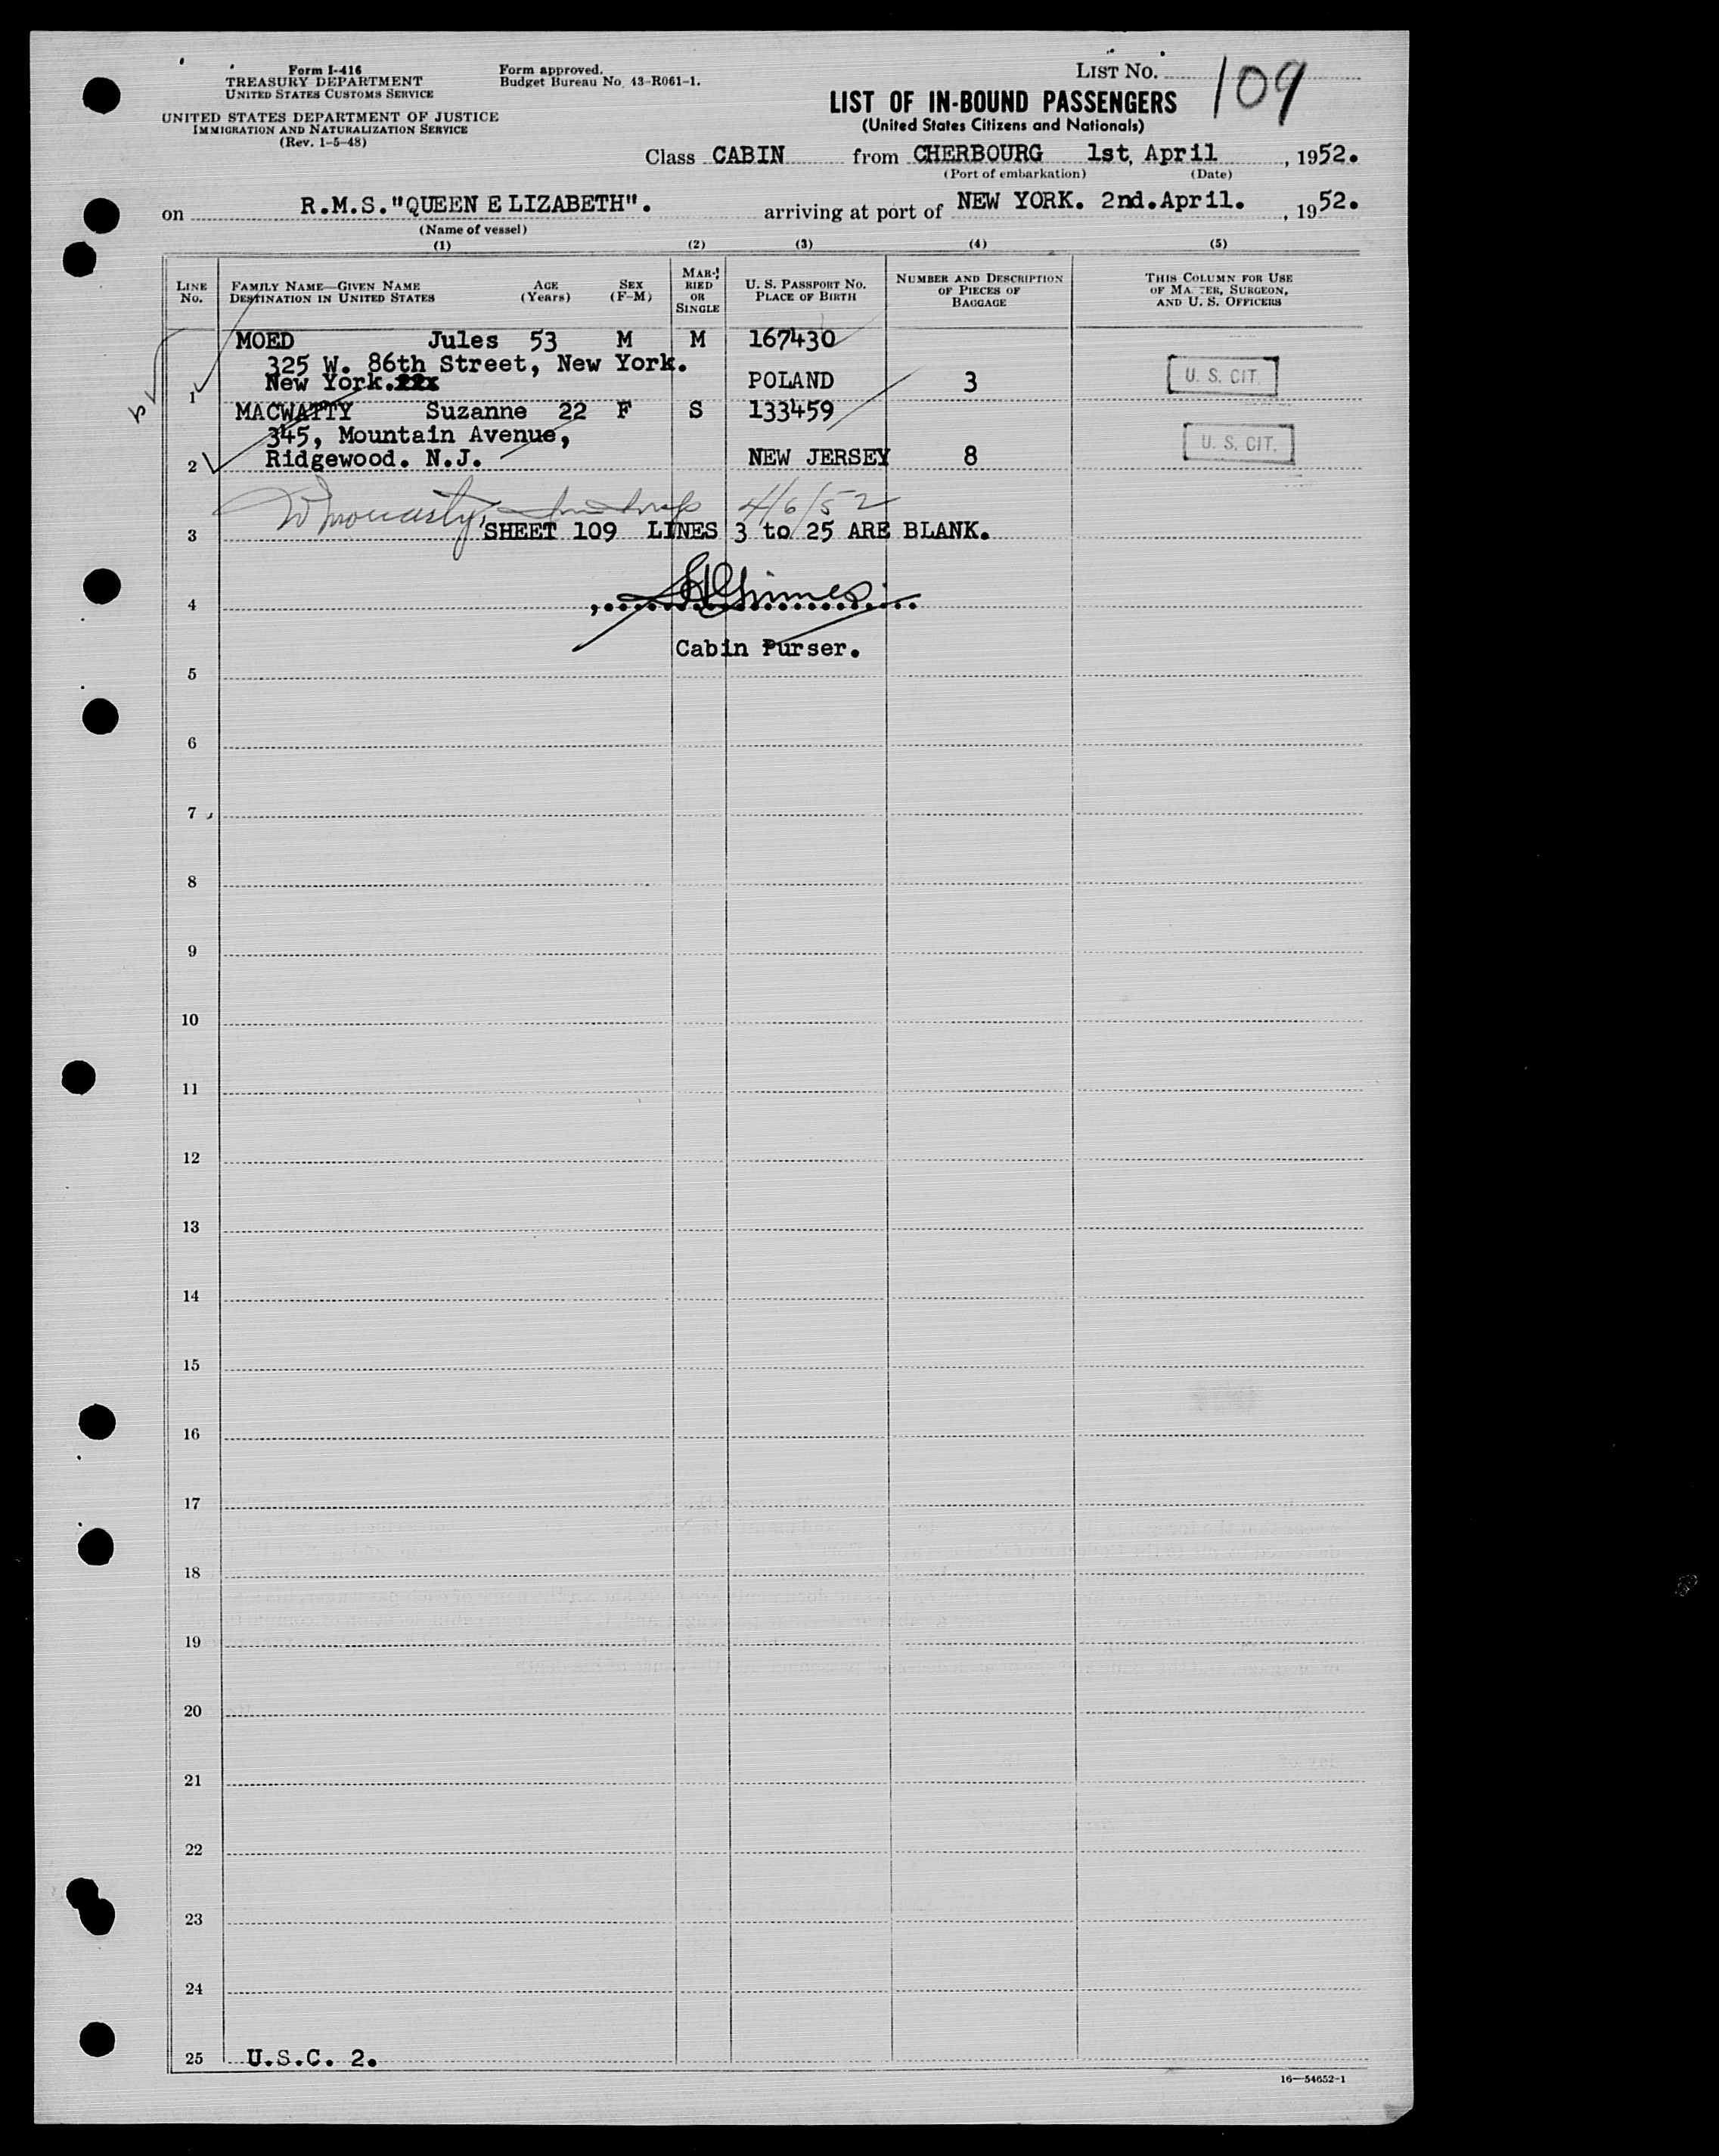 Form I-416
TREASURY DEPARTMENT
UNITED STATES CUSTOMS SERVICE
UNITED STATES DEPARTMENT OF JUSTICE
IMMIGRATION AND NATURALIZATION SERVICE
(Rev. 1-5-48)
Form approved.
Budget Bureau No. 43-R061-1.
LIST No. 109
LIST OF IN-BOUND PASSENGERS
(United States Citizens and Nationals)
Class CABIN from CHERBOURG 1st, April , 1952.
(Port of embarkation) (Date)
on R.M.S."QUEEN ELIZABETH". arriving at port of NEW YORK. 2nd.April. , 1952.
(Name of vessel)
(1) (2) (3) (4) (5)
LINE No.
FAMILY NAME—GIVEN NAME
DESTINATION IN UNITED STATES
AGE (Years)
SEX (F-M)
MAR-RIED OR SINGLE
U. S. PASSPORT No.
PLACE OF BIRTH
NUMBER AND DESCRIPTION OF PIECES OF BAGGAGE
THIS COLUMN FOR USE OF MASTER, SURGEON, AND U. S. OFFICERS
MOED Jules 53 M M 167430
325 W. 86th Street, New York.
1 New York. POLAND 3 U. S. CIT.
MACWATTY Suzanne 22 F S 133459
345, Mountain Avenue,
2 Ridgewood. N.J. NEW JERSEY 8 U. S. CIT.
4/6/52
3 SHEET 109 LINES 3 to 25 ARE BLANK.
4
Cabin Purser.
5
6
7
8
9
10
11
12
13
14
15
16
17
18
19
20
21
22
23
24
25 U.S.C. 2.
16—54652-1